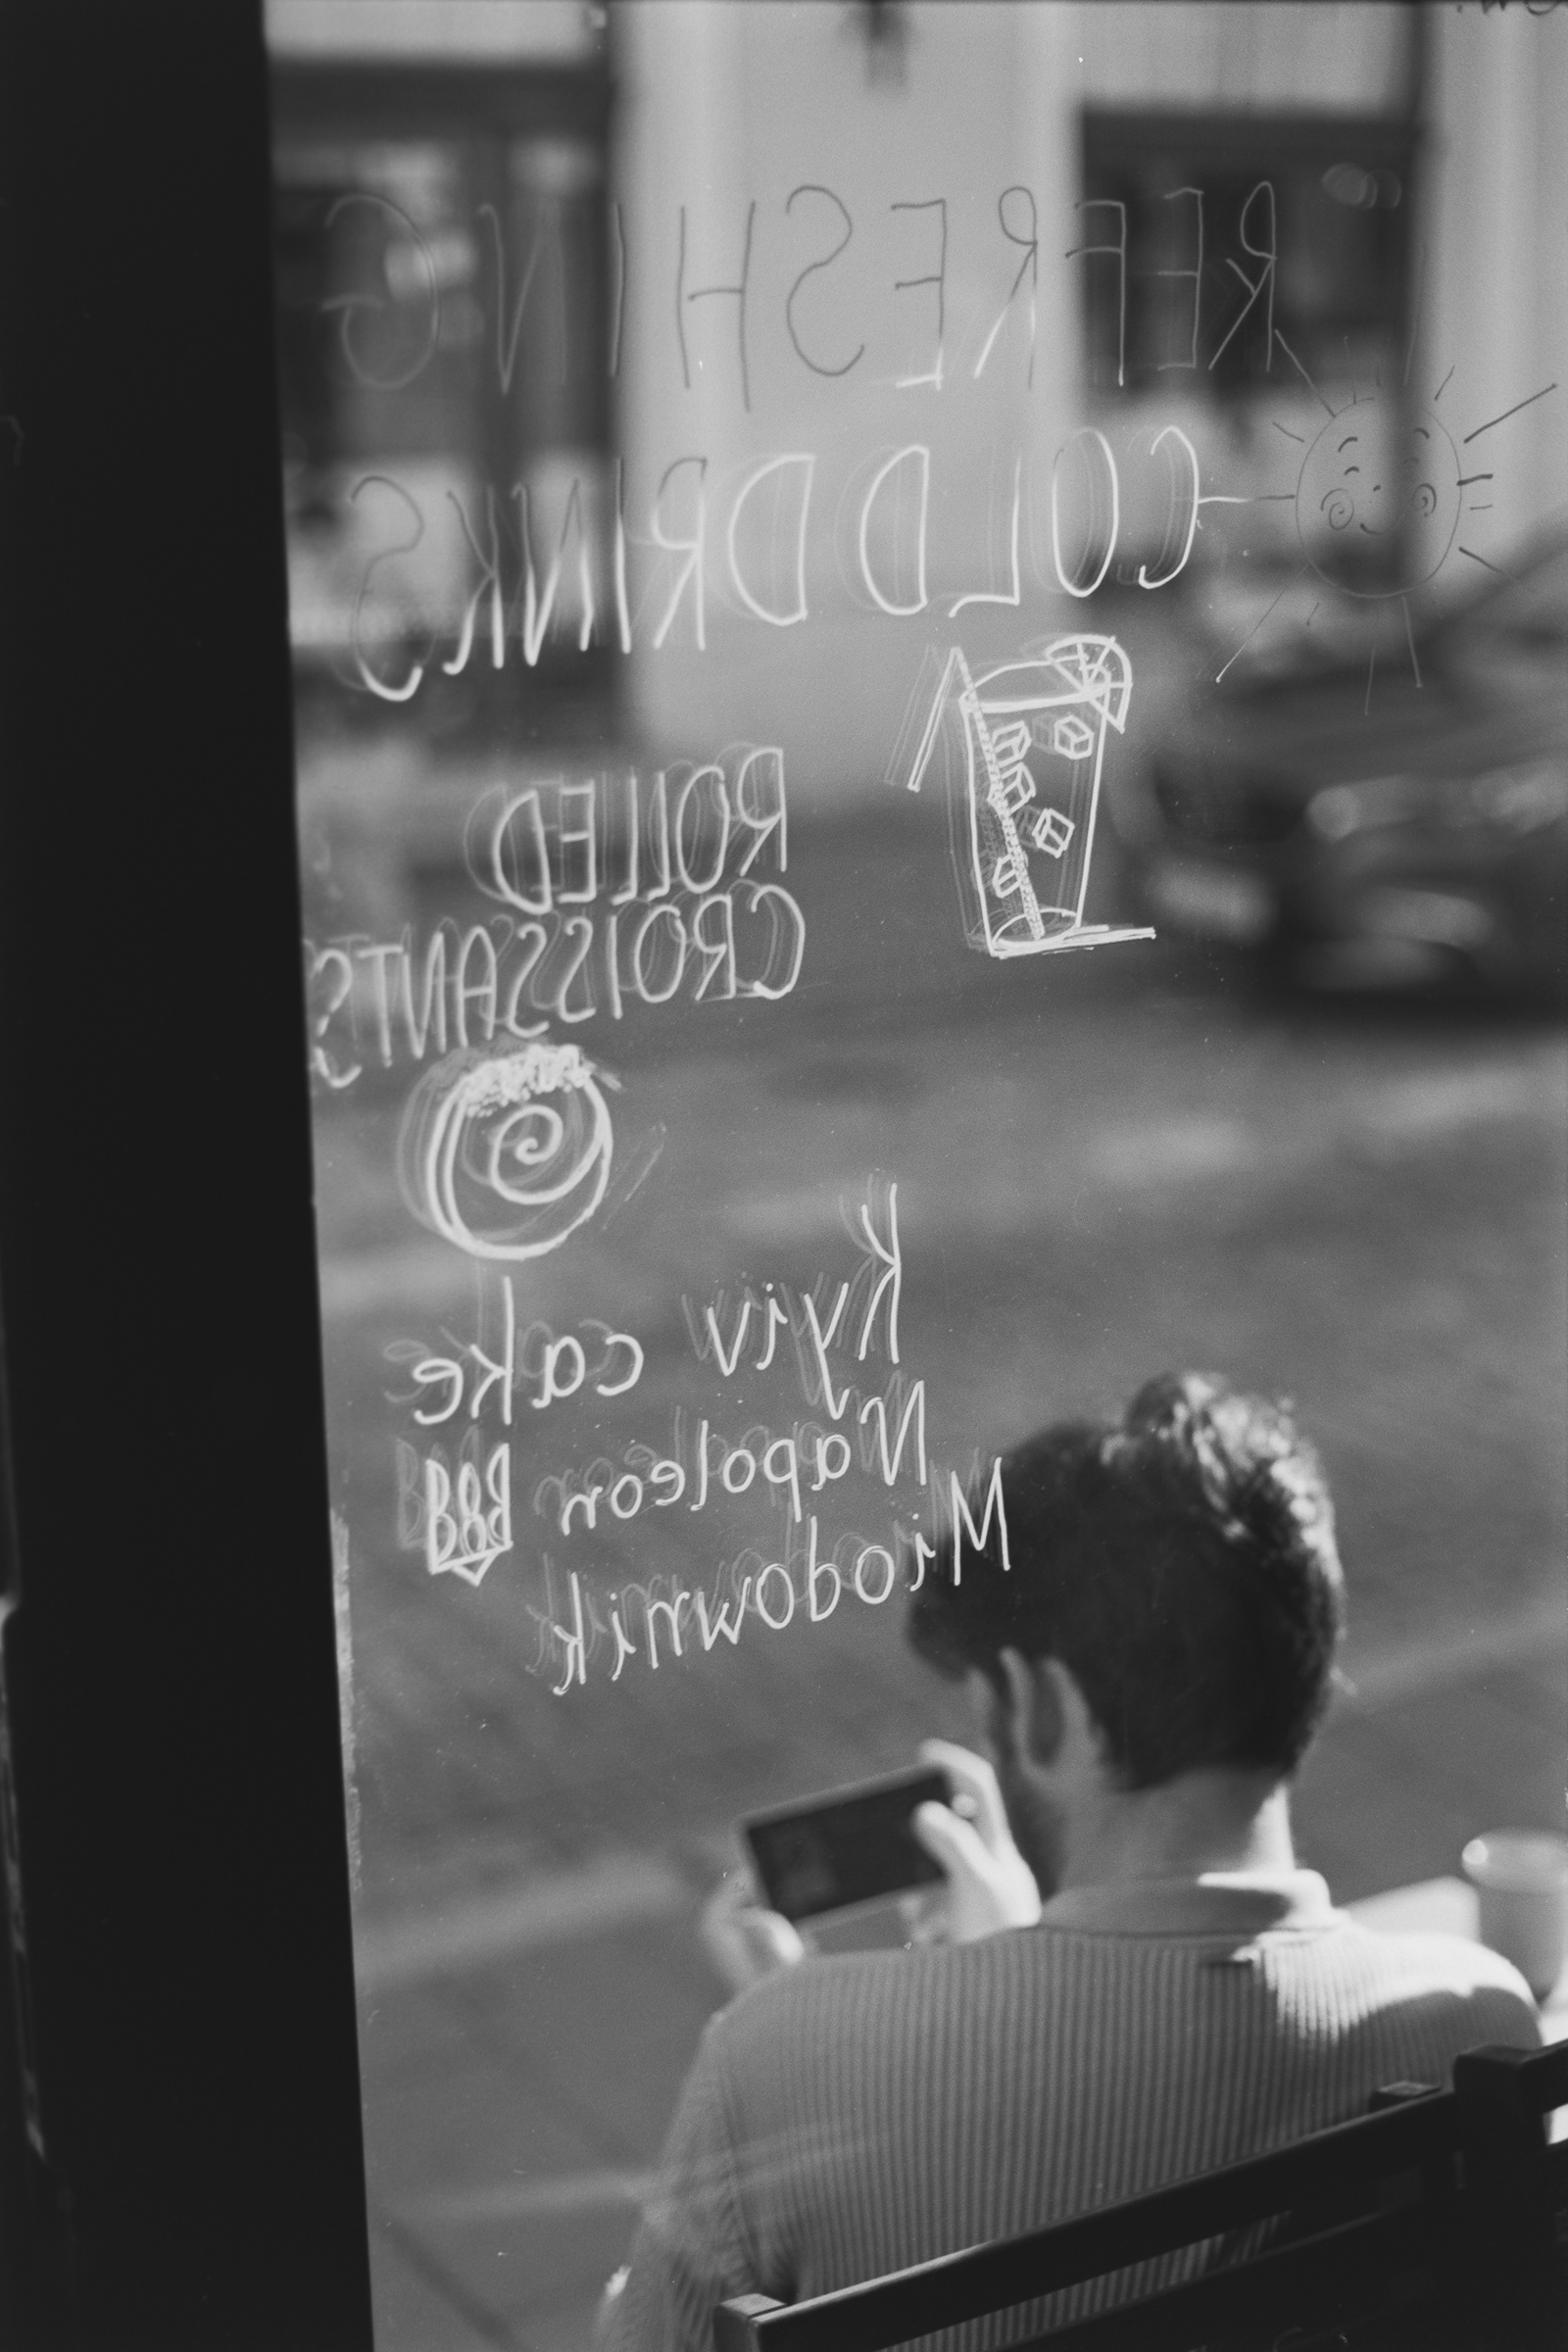 REFRESHING
COLD DRINKS
ROLLED
CROISSANTS
Kyiv cake
Napoleon
Miodownik